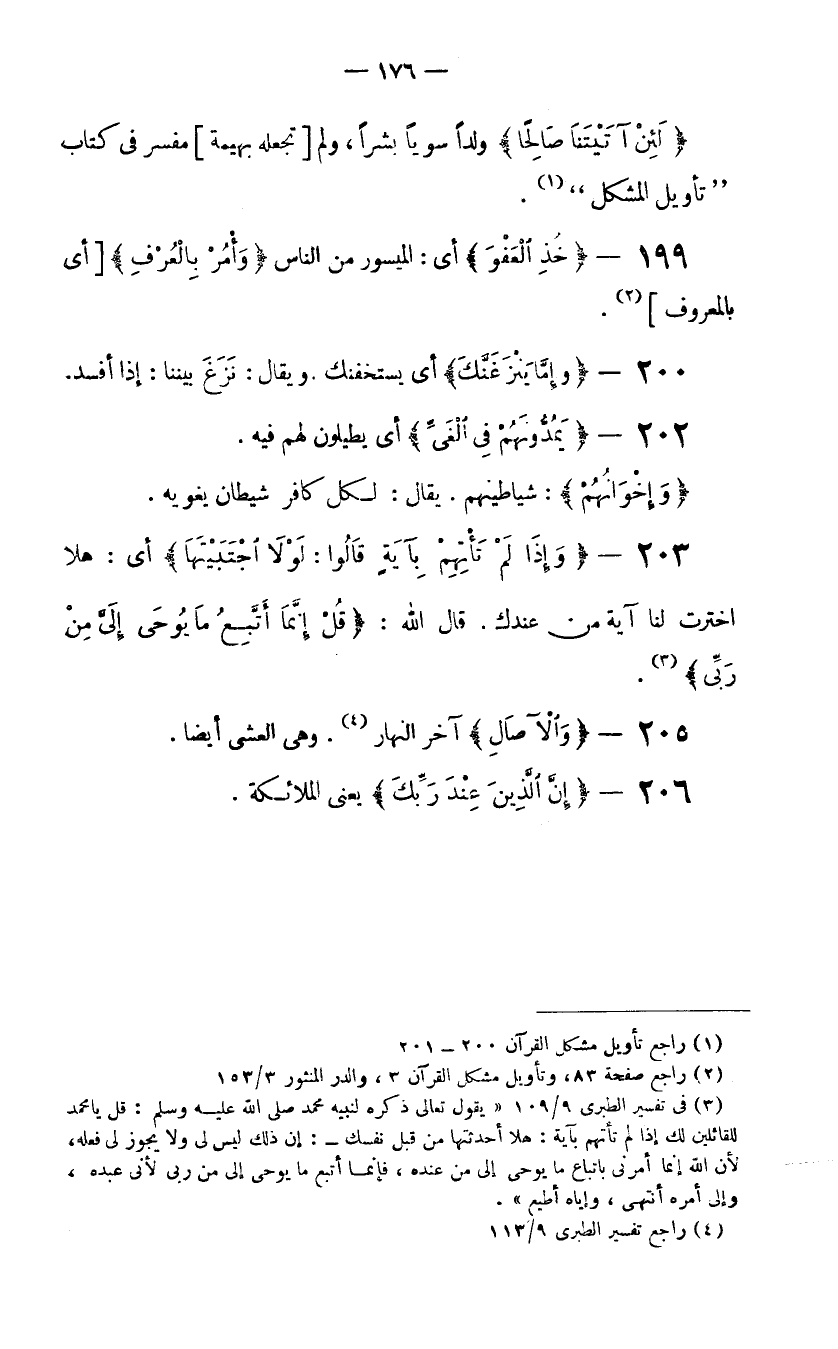 — ١٧٦ —
﴿ لَئِنْ آتَيْتَنَا صَالِحًا ﴾ ولداً سوياً بشراً ، ولم [ تجعله بهيمة ] مفسر فى كتاب
” تأويل المشكل “ (١) .
١٩٩ — ﴿ خُذِ ٱلْعَفْوَ ﴾ أى : الميسور من الناس ﴿ وَأْمُرْ بِالْعُرْفِ ﴾ [ أى
بالمعروف ] (٢) .
٢٠٠ — ﴿ وإِمَّا يَنْزَغَنَّكَ ﴾ أى يستخفنك . ويقال : نَزَغَ بيننا : إذا أفسد.
٢٠٢ — ﴿ يَمُدُّونَهُمْ فِى ٱلْغَىِّ ﴾ أى يطيلون لهم فيه .
﴿ وَإِخْوَانُهُمْ ﴾ : شياطينهم . يقال : لكل كافر شيطان يغويه .
٢٠٣ — ﴿ وَإِذَا لَمْ تَأْتِهِمْ بِآيَةٍ قَالُوا : لَوْلَا ٱجْتَبَيْتَهَا ﴾ أى : هلا
اخترت لنا آية من عندك . قال الله : ﴿ قُلْ إِنَّمَا أَتَّبِعُ مَا يُوحَى إِلَىَّ مِنْ
رَبِّى ﴾ (٣) .
٢٠٥ — ﴿ وَٱلْآصَالِ ﴾ آخر النهار (٤) . وهى العشى أيضا .
٢٠٦ — ﴿ إِنَّ ٱلَّذِينَ عِنْدَ رَبِّكَ ﴾ يعنى الملائكة .
(١) راجع تأويل مشكل القرآن ٢٠٠ – ٢٠١
(٢) راجع صفحة ٨٣، وتأويل مشكل القرآن ٣ ، والدر المنثور ١٥٣/٣
(٣) فى تفسير الطبرى ١٠٩/٩ « يقول تعالى ذكره لنبيه محمد صلى الله عليه وسلم : قل يامحمد
للقائلين لك إذا لم تأتهم بآية : هلا أحدثتها من قبل نفسك – : إن ذلك ليس لى ولا يجوز لى فعله،
لأن الله إنما أمرنى باتباع ما يوحى إلى من عنده ، فإنما أتبع ما يوحى إلى من ربى لأنى عبده ،
وإلى أمره أنتهى ، وإياه أطيع » .
(٤) راجع تفسير الطبرى ١١٣/٩